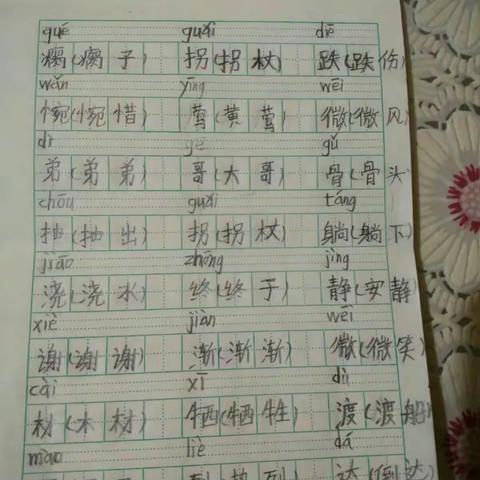 qué guǎi diē
瘸(瘸子) 拐(拐杖) 跌(跌伤)
wǎn yīng wēi
惋(惋惜) 莺(黄莺) 微(微风)
dì gē gǔ
弟(弟弟) 哥(大哥) 骨(骨头)
chōu guǎi tǎng
抽(抽出) 拐(拐杖) 躺(躺下)
jiāo zhōng jìng
浇(浇水) 终(终于) 静(安静)
xiè jiàn wēi
谢(谢谢) 渐(渐渐) 微(微笑)
cái xī dù
材(木材) 牺(牺牲) 渡(渡船)
mào liè dá
烈(热烈) 达(到达)